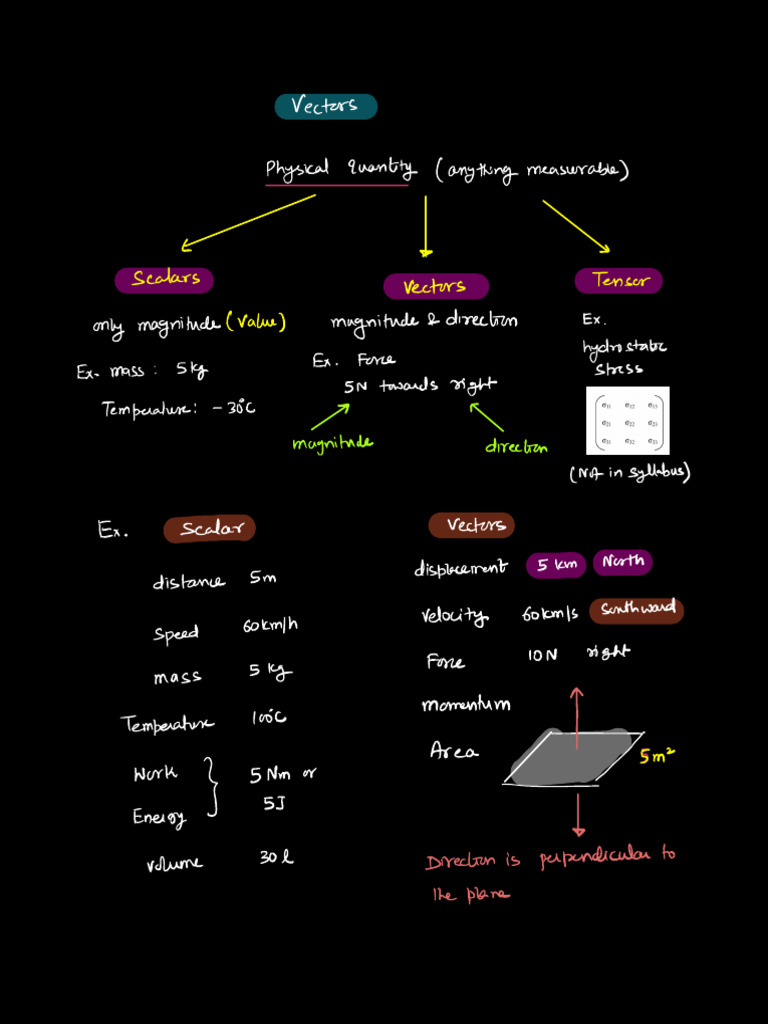 Vectors
Physical Quantity (anything measurable)
Scalars
Vectors
Tensor
only magnitude (value)
Ex. mass : 5 kg
Temperature: -30°C
magnitude & direction
Ex. Force
5N towards right
magnitude
direction
Ex.
hydrostatic
stress
σ11 σ12 σ13
σ21 σ22 σ23
σ31 σ32 σ33
(NA in syllabus)
Ex. Scalar
distance 5m
speed 60km/h
mass 5 kg
Temperature 100°C
Work 5 Nm or
Energy 5J
volume 30 l
Vectors
displacement 5 km North
Velocity 60km/s Southward
Force 10N right
momentum
Area 5m²
Direction is perpendicular to
the plane